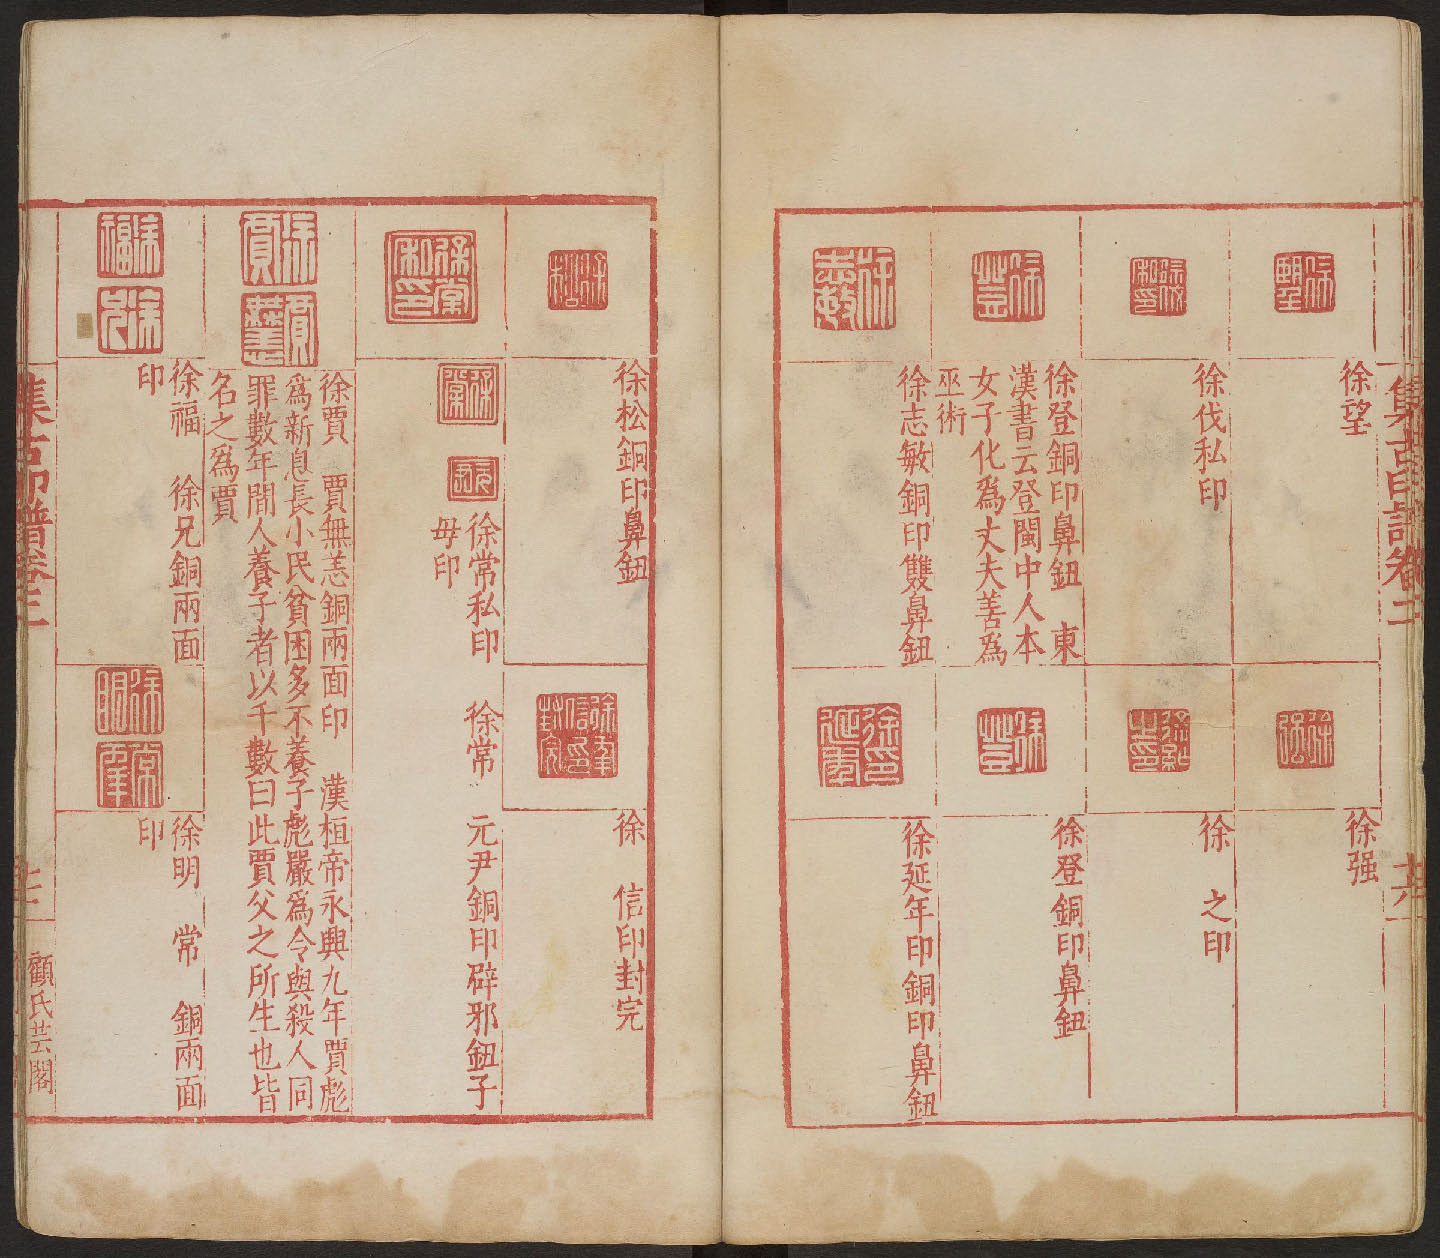 集古印譜卷二
十六
徐望
徐强
徐伐私印
徐 之印
徐登銅印鼻鈕 東
漢書云登閩中人本
女子化爲丈夫善爲
巫術
徐登銅印鼻鈕
徐志敏銅印雙鼻鈕
徐延年印銅印鼻鈕
徐松銅印鼻鈕
徐 信印封完
徐常私印 徐常 元尹銅印辟邪鈕子
母印
徐賈 賈無恙銅兩面印 漢桓帝永興九年賈彪
爲新息長小民貧困多不養子彪嚴爲令與殺人同
罪數年間人養子者以千數曰此賈父之所生也皆
名之爲賈
徐福 徐兄銅兩面
印
徐明 常 銅兩面
印
集古印譜卷二
顧氏芸閣